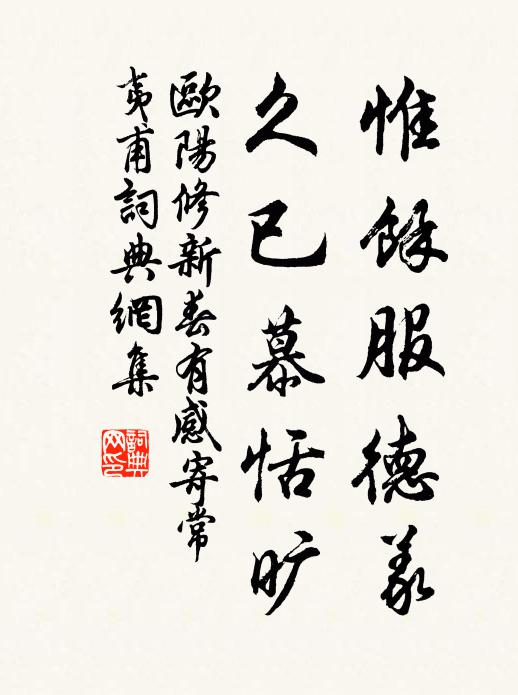 惟餘服德義
久已慕恬旷
歐陽修新春有感寄常
夷甫詞典網集
詞典
网印